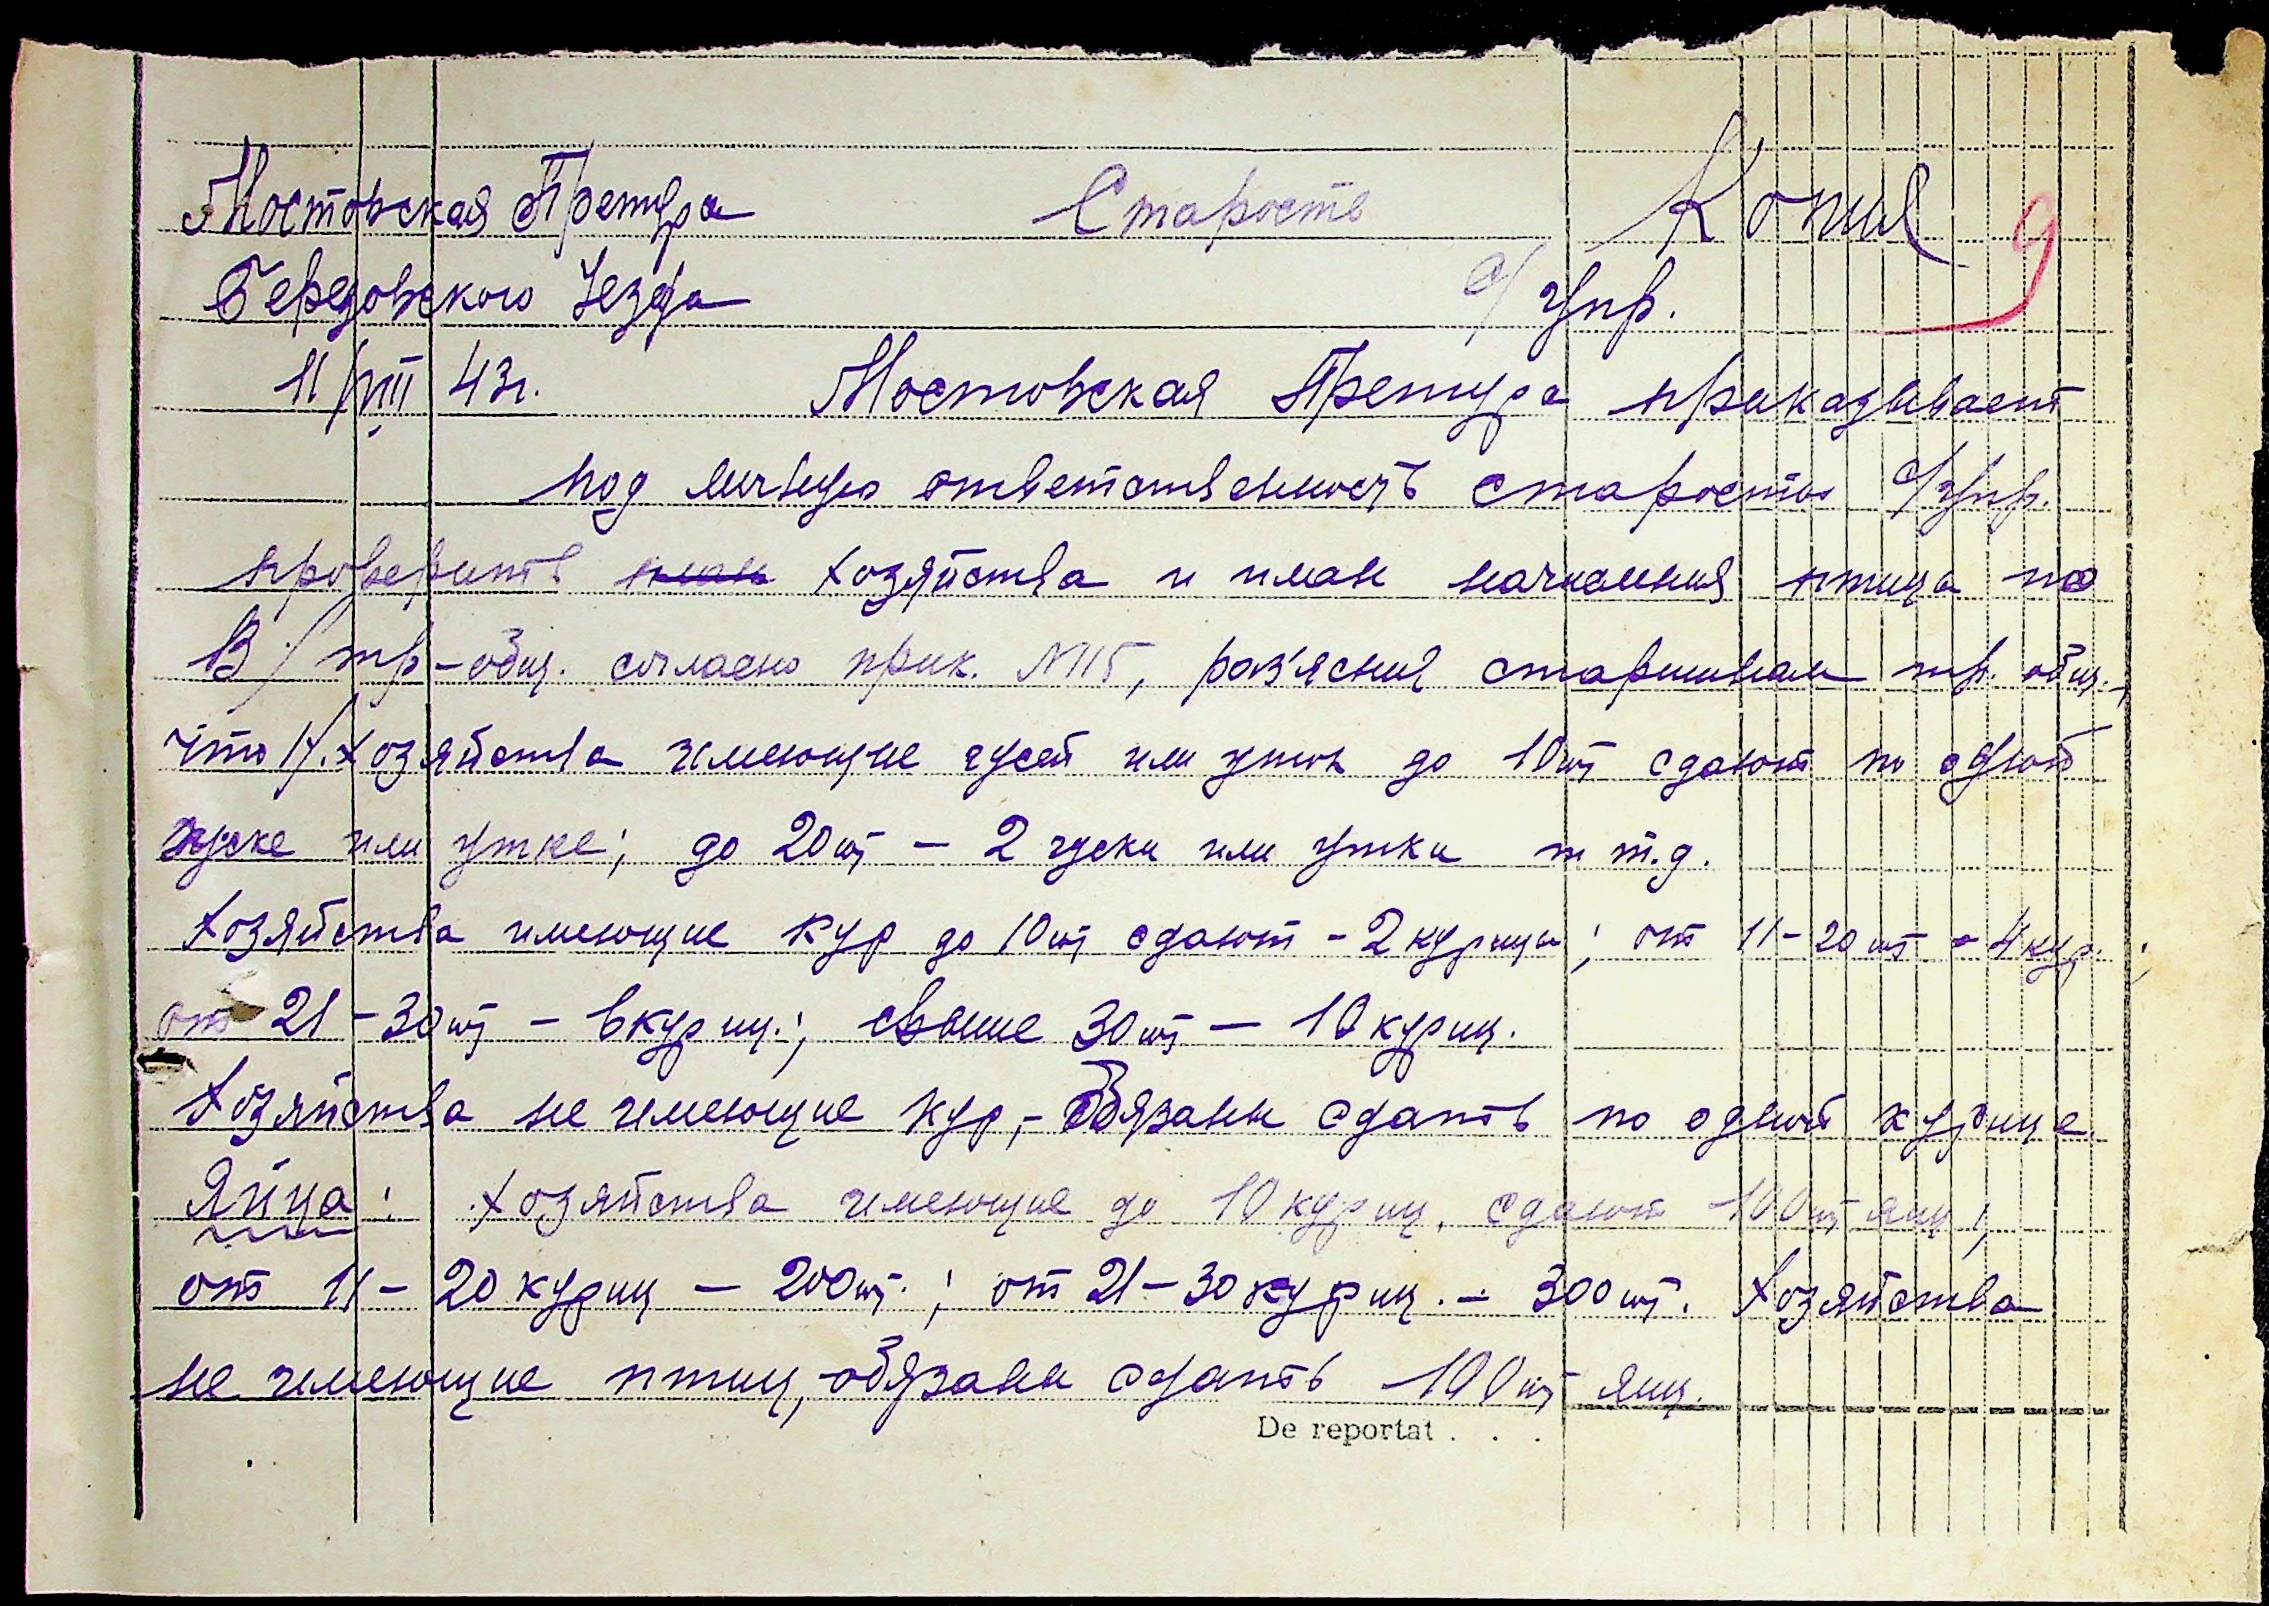 Мостовская Претура Старосте Копия 9
Березовского Уезда с/упр.
11/VIII 43г. Мостовская Претура приказывает
под личную ответственность старосты с/упр.
проверить план хозяйства и план начисления птицы по
В/тр-общ. согласно прик. №115, раз'яснив старшинам тр. общ.,
что 1/. хозяйства имеющие гусей или уток до 10шт сдают по одной
гуске или утке; до 20шт – 2 гуски или утки и т.д.
Хозяйства имеющие кур до 10шт сдают – 2 курицы; от 11–20шт – 4 кур.;
от 21–30шт – 6 куриц.; свыше 30шт – 10 куриц.
Хозяйства не имеющие кур, – обязаны сдать по одной курице.
Яйца: Хозяйства имеющие до 10 куриц. сдают 100шт яиц;
от 11–20 куриц – 200шт.; от 21–30 куриц. – 300шт. Хозяйства
не имеющие птиц, – обязаны сдать 100шт яиц.
De reportat . . .